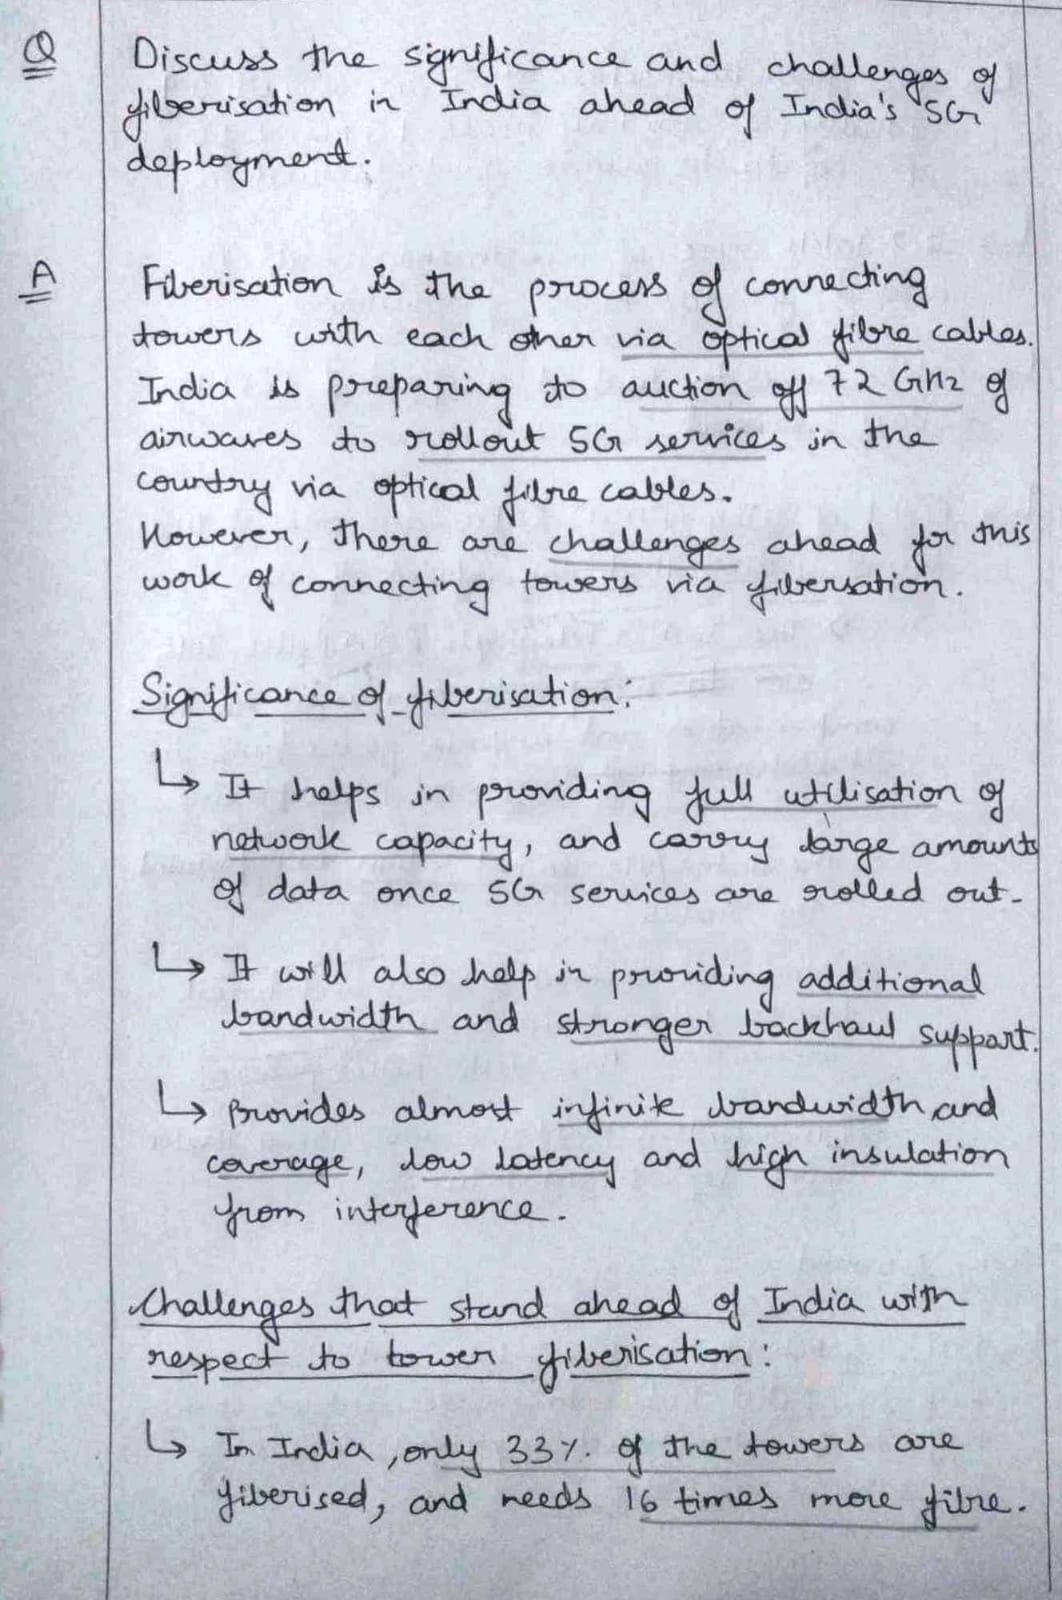 Q Discuss the significance and challenges of
fiberisation in India ahead of India's 5G
deployment.
A Fiberisation is the process of connecting
towers with each other via optical fibre cables.
India is preparing to auction off 72 GHz of
airwaves to rollout 5G services in the
country via optical fibre cables.
However, there are challenges ahead for this
work of connecting towers via fibersation.
Significance of fiberisation:
↳ It helps in providing full utilisation of
network capacity, and carry large amounts
of data once 5G services are rolled out.
↳ It will also help in providing additional
bandwidth and stronger backhaul support.
↳ Provides almost infinite bandwidth and
coverage, low latency and high insulation
from interference.
Challenges that stand ahead of India with
respect to tower fiberisation:
↳ In India, only 33% of the towers are
fiberised, and needs 16 times more fibre.